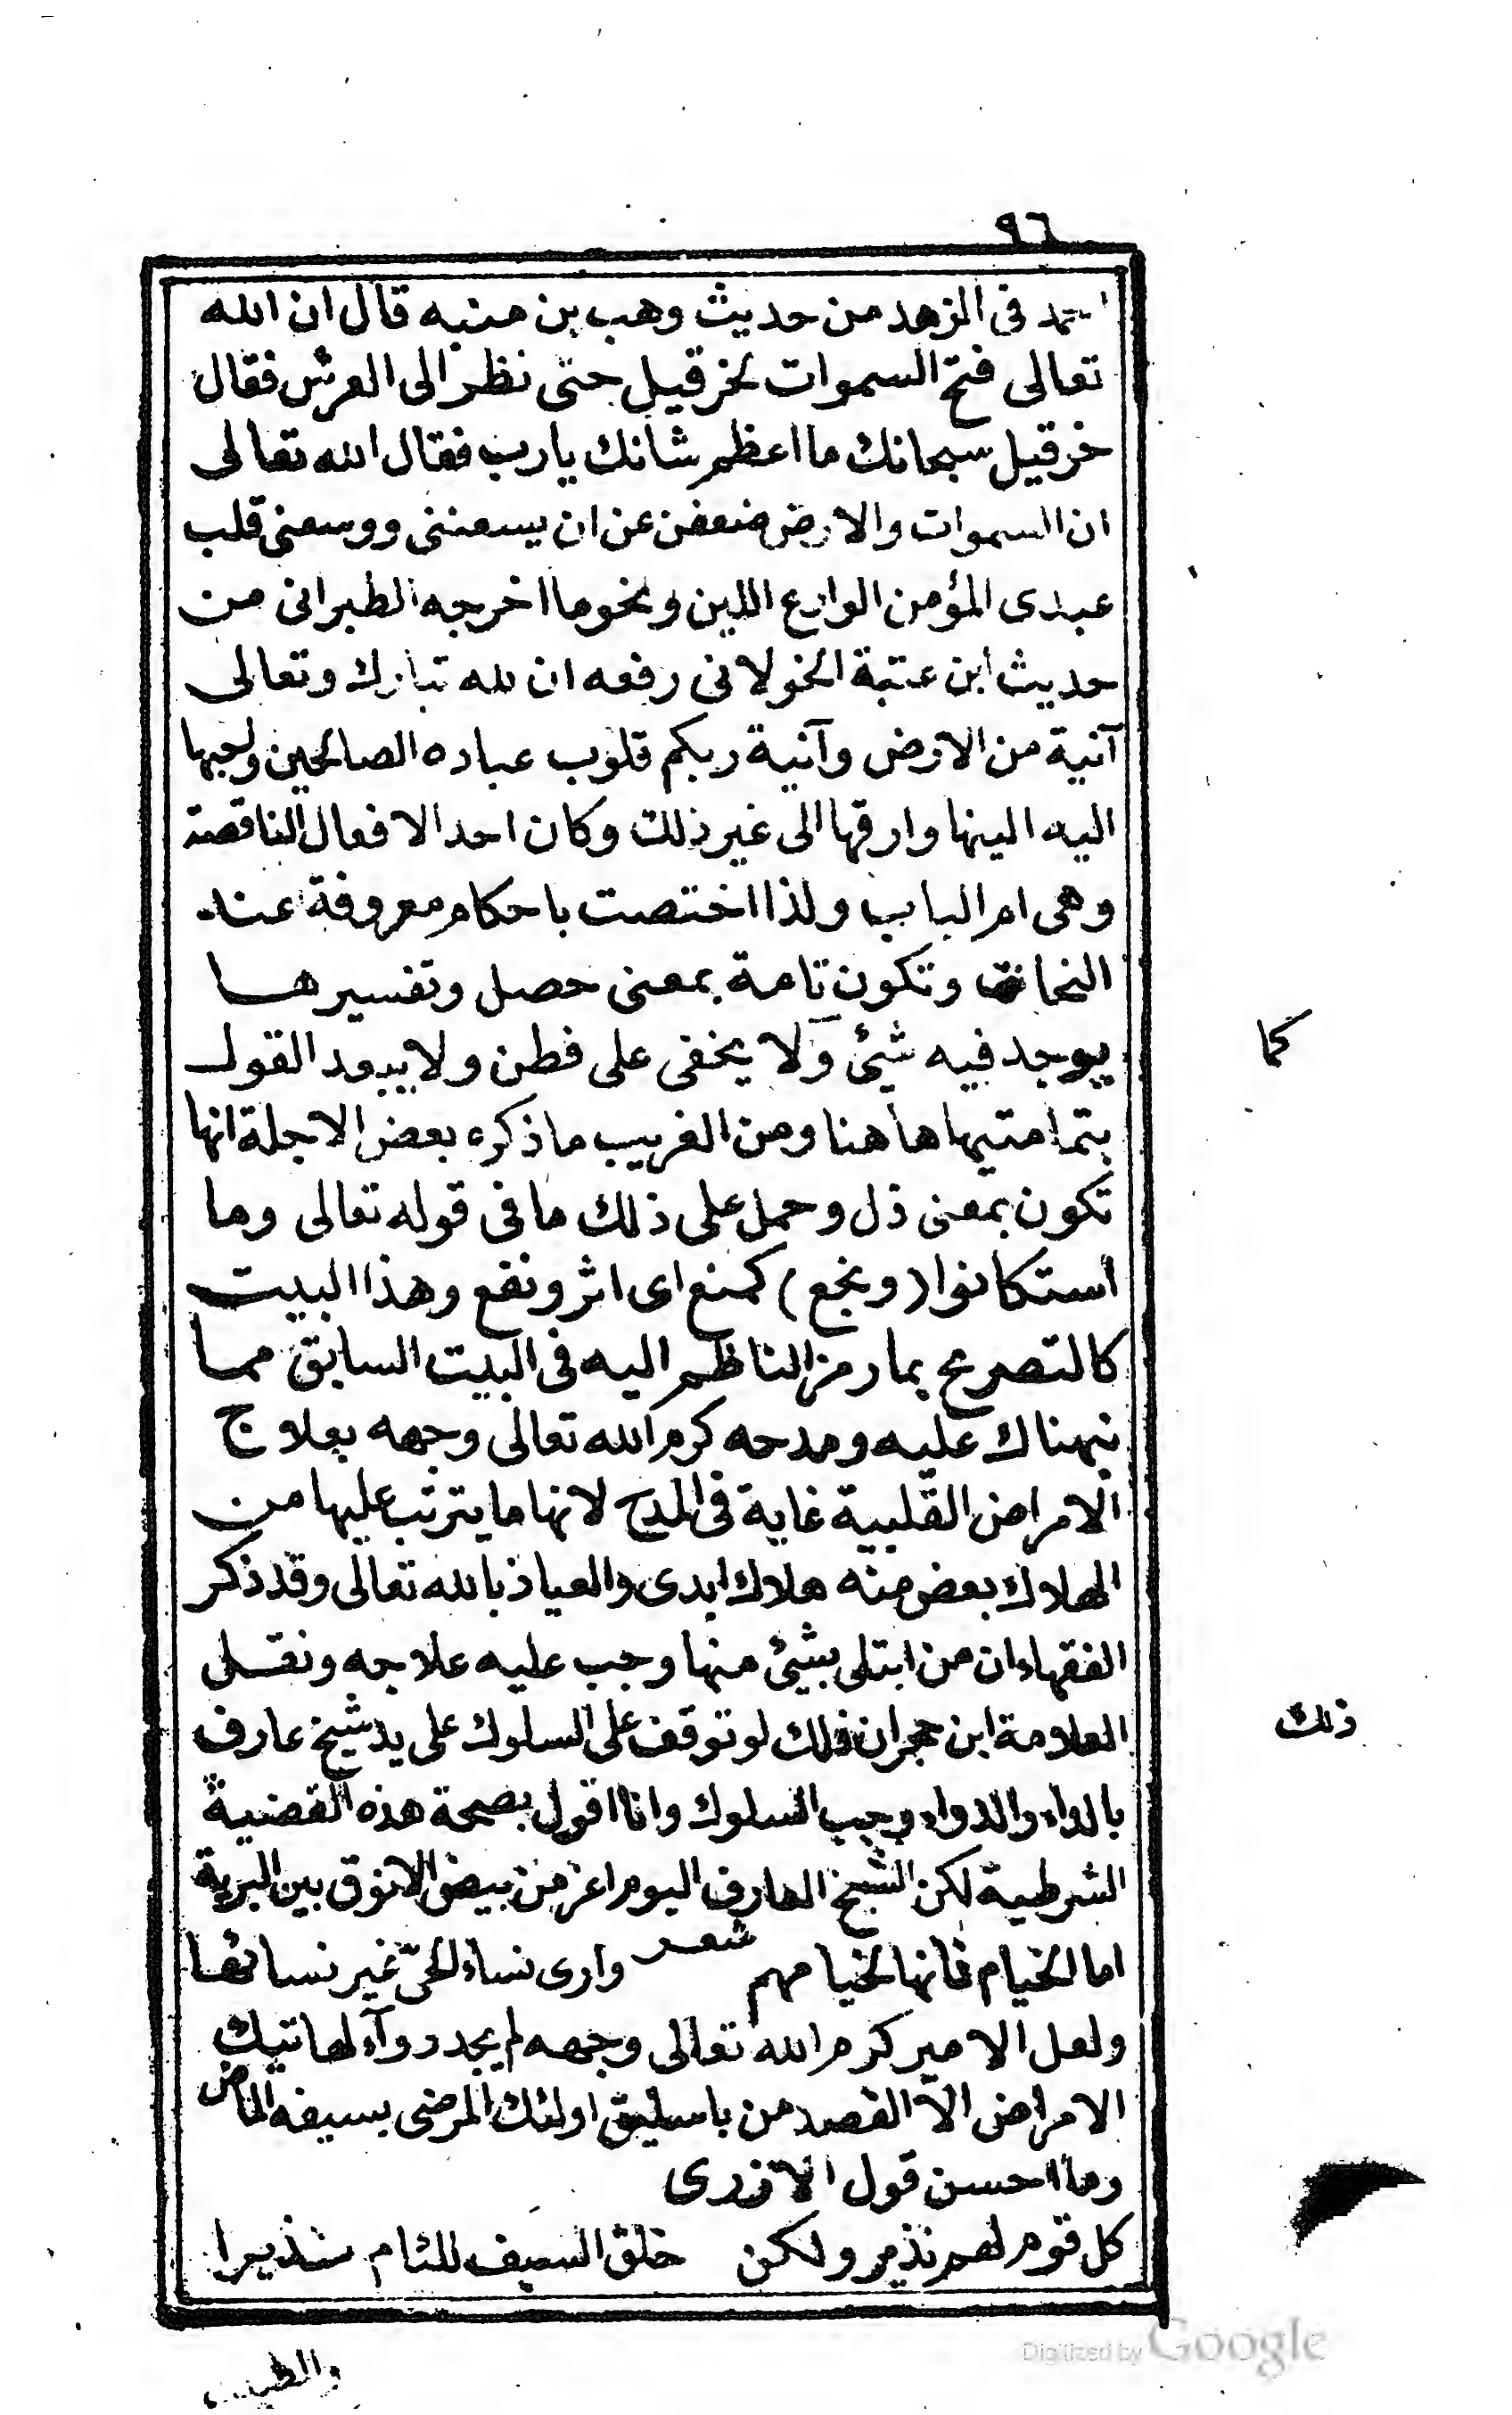 ٩٦
احمد فى الزهد من حديث وهب بن منبه قال ان الله
تعالى فتح السموات لخرقيل حتى نظر الى العرش فقال
خرقيل سبحانك ما اعظم شانك يارب فقال الله تعالى
ان السموات والارض ضعفن عن ان يسعننى ووسعنى قلب
عبدى المؤمن الوارع اللين ونحوما اخرجه الطبرانى من
حديث ابن عتبة الخولانى رفعه ان لله تبارك وتعالى
آنية من الارض وآنية ربكم قلوب عباده الصالحين ولحبها
اليه الينها وارقها الى غير ذلك وكان احد الافعال الناقصة
وهى ام الباب ولذا اختصت باحكام معروفة عند
النحاة وتكون تامة بمعنى حصل وتفسيرها
بيوجد فيه شيئ ولا يخفى على فطن ولا يبعد القول
كما
بتمامتيها هاهنا ومن الغريب ما ذكره بعض الاجلة انها
تكون بمعنى ذل وحمل على ذلك ما فى قوله تعالى وما
استكانوا (ونجع) كمنع اى اثر ونفع وهذا البيت
كالتصريح بما رمز الناظم اليه فى البيت السابق مما
نبهناك عليه ومدحه كرم الله تعالى وجهه بعلاج
الامراض القلبية غاية فى المدح لانها ما يترتب عليها من
الهلاك بعض منه هلاك ابدى والعياذ بالله تعالى وقد ذكر
الفقهاء ان من ابتلى بشيئ منها وجب عليه علاجه ونقل
العلامة ابن حجر ان ذلك لو توقف على السلوك على يد شيخ عارف
ذلك
بالداء والدواء وجب السلوك وانا اقول بصحة هذه القضية
الشرطية لكن الشيخ العارف اليوم اعز من بيض الانوق بين البرية
شعر
اما الخيام فانها لخيامهم وارى نساء الحىّ غير نسائها
ولعل الامير كرم الله تعالى وجهه لم يجد دوآء لهاتيك
الامراض الا الفصد من باسليق اولئك المرضى بسيفه الماض
وما احسن قول الازرى
كل قوم لهم نذير ولكن خلق السيف للئام نذيرا
والطبيب
Digitized by Google